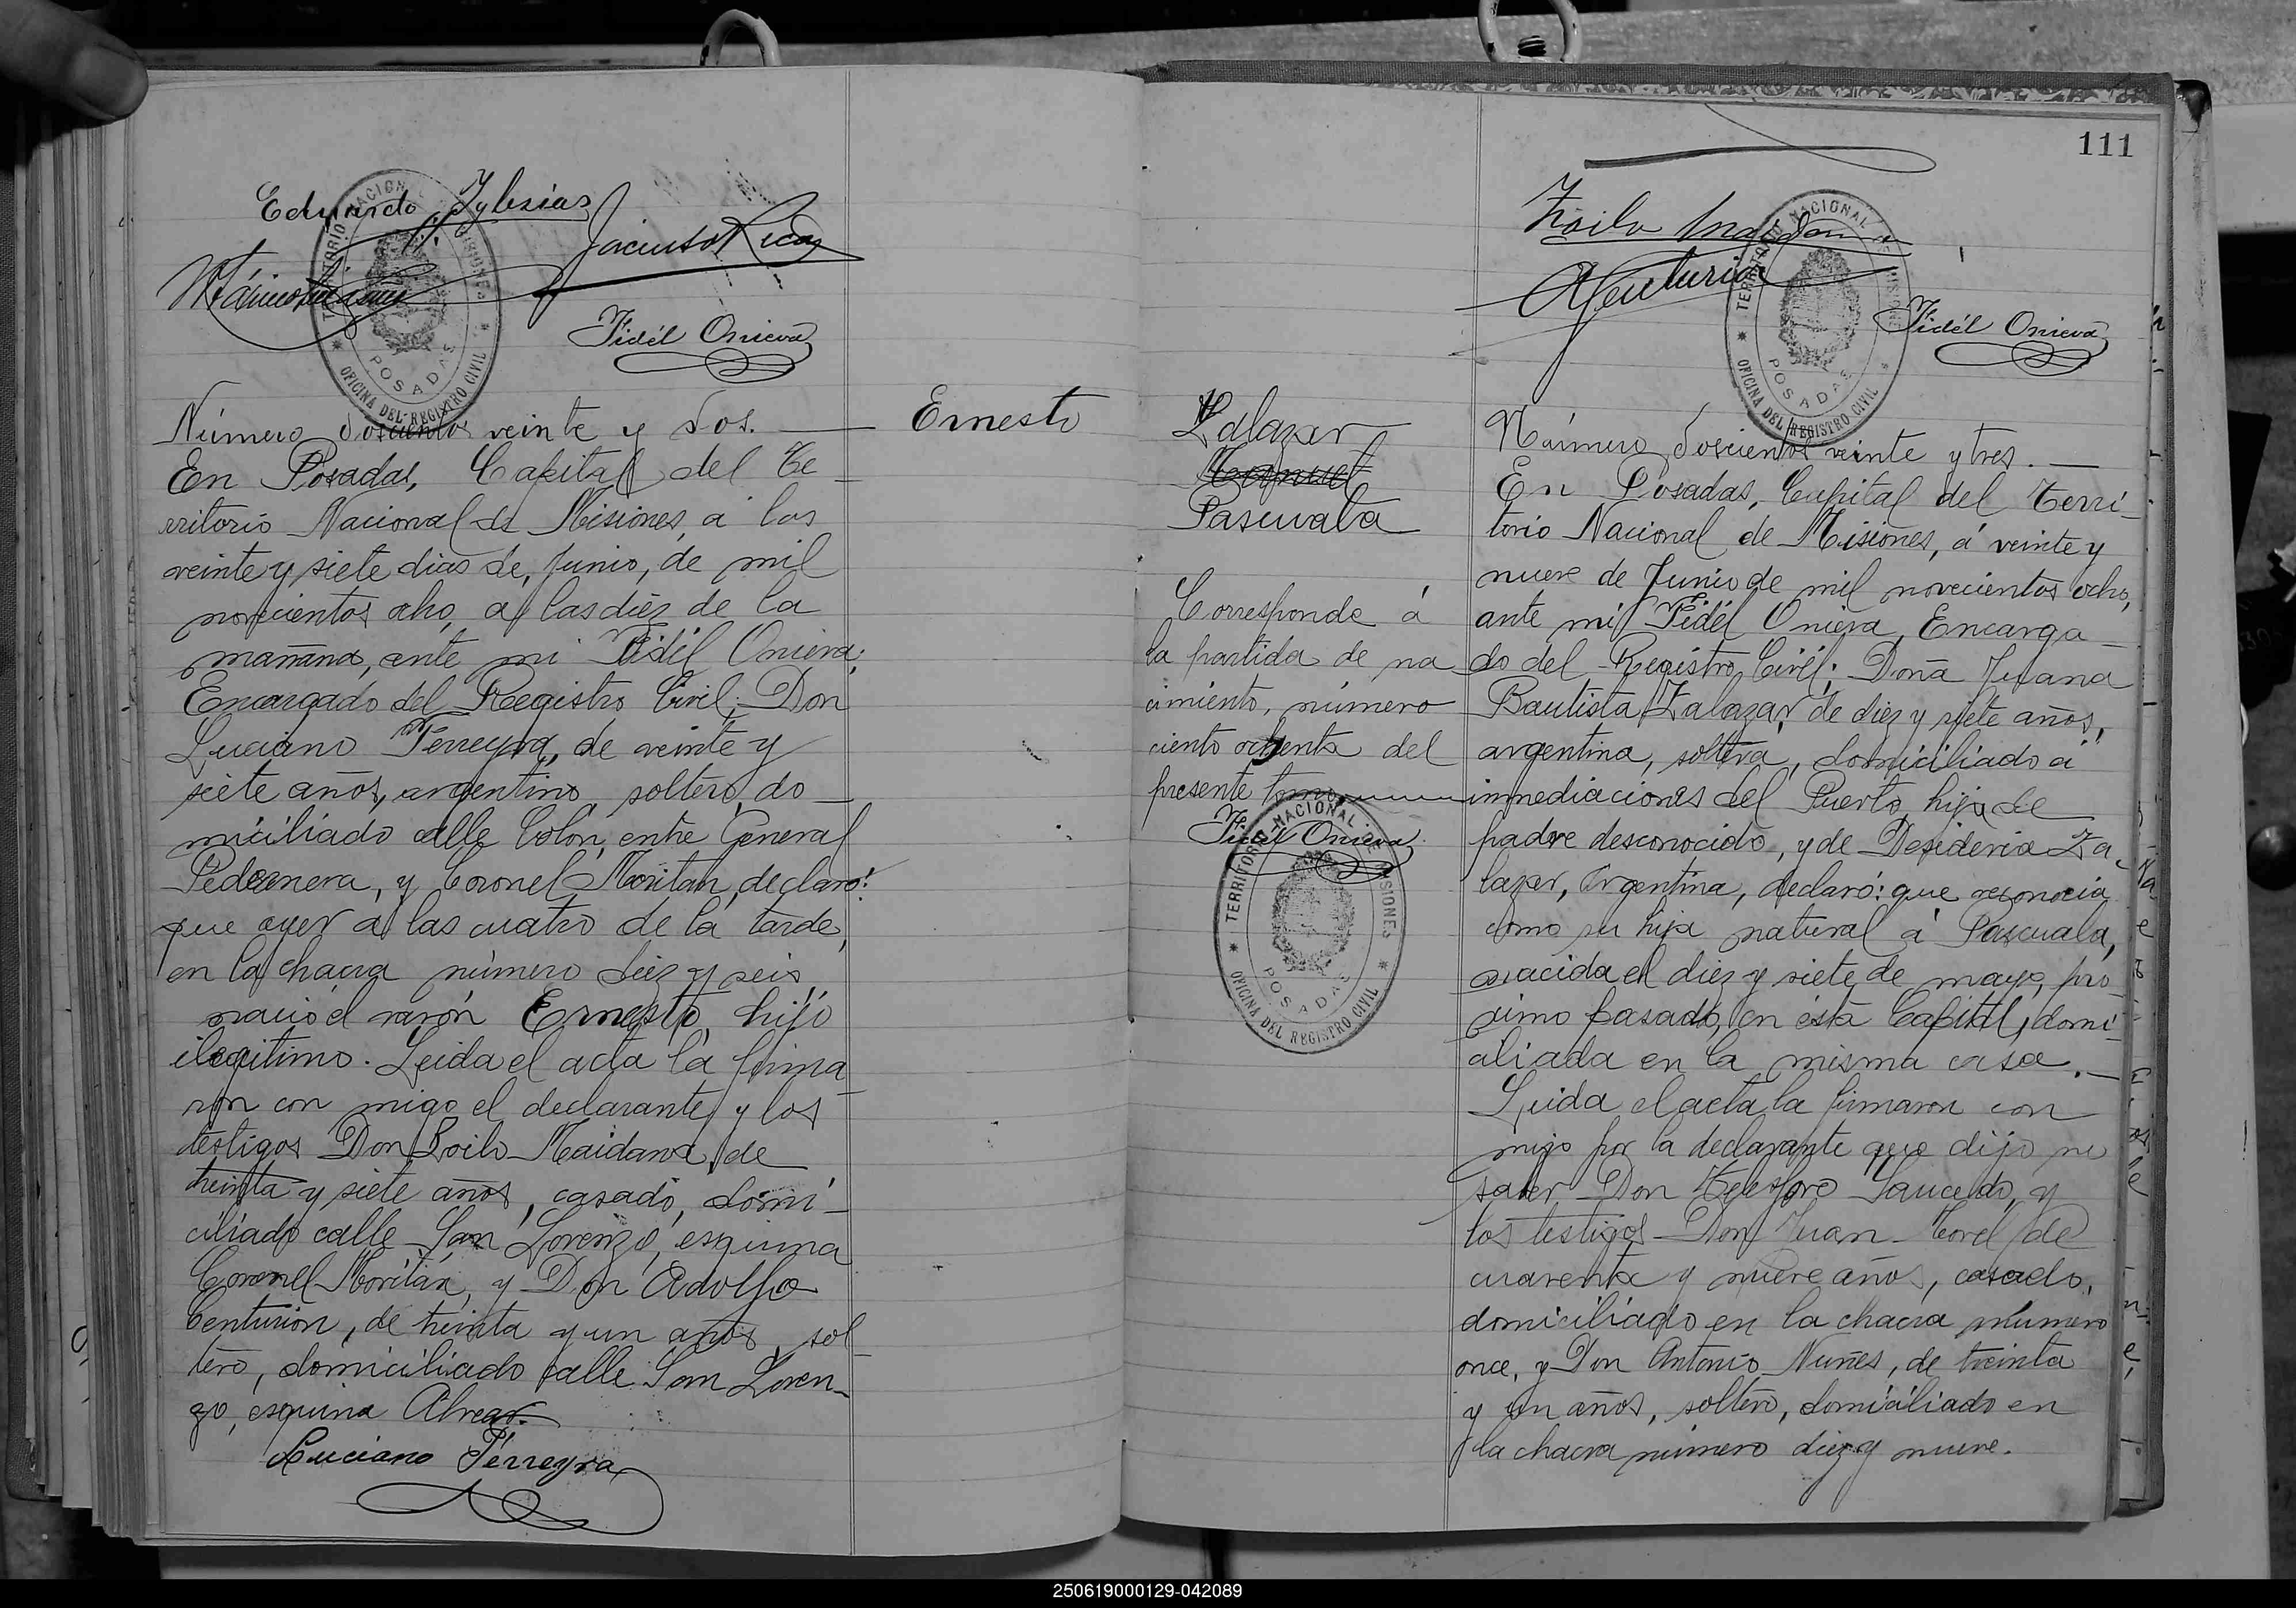 Eduardo Yglesias
Jacinto
Fidél Onieva
TERRITORIO NACIONAL DE MISIONES
POSADAS
OFICINA DEL REGISTRO CIVIL
Número doscientos veinte y dos.
Ernesto
En Posadas, Capital del Te
rritorio Nacional de Misiones, á los
veinte y siete dias de, Junio, de mil
novecientos ocho, a las diez de la
mañana, ante mi Fidél Onieva,
Encargado del Registro Civil; Don
Luciano Ferreyra, de veinte y
siete años, argentino, soltero, do
miciliado calle Colón, entre General
Pedernera, y Coronel Moritán, declaró:
que ayer a las cuatro de la tarde,
en la chacra número diez y seis,
nació el varón Ernesto, hijo
ilegitimo. Leida el acta la firma
ron con migo el declarante y los
testigos Don Zoilo Maidana, de
treinta y siete años, casado, domi
ciliado calle San Lorenzo, esquina
Coronel Moritán, y Don Adolfo
Centurion, de treinta y un años, sol
tero, domiciliado calle San Loren
zo, esquina Alvear.
Luciano Ferreyra
111
Zoilo Maidana
ACenturion
Fidél Onieva
TERRITORIO NACIONAL DE MISIONES
POSADAS
OFICINA DEL REGISTRO CIVIL
Zalazar
Pascuala
Corresponde á
la partida de na
cimiento, número
ciento ochenta del
presente tomo
Fidél Onieva
TERRITORIO NACIONAL DE MISIONES
POSADAS
OFICINA DEL REGISTRO CIVIL
Número doscientos veinte y tres.
En Posadas, Capital del Terri
torio Nacional de Misiones, á veinte y
nueve de Junio de mil novecientos ocho,
ante mi Fidél Onieva, Encarga
do del Registro Civil; Doña Juana
Bautista Zalazar, de diez y siete años,
argentina, soltera, domiciliado á
inmediaciones del Puerto, hija de
padre desconocido, y de Desideria Za
lazar, Argentina, declaró: que reconocia
como su hija natural á Pascuala,
nacida el diez y siete de mayo, pro
ximo pasado, en ésta Capital, domi
ciliada en la misma casa.
Leida el acta la firmaron con
migo por la declarante que dijo no
saber Don Telesforo Saucedo, y
los testigos Don Juan Corel de
cuarenta y nueve años, casado,
domiciliado en la chacra número
once, y Don Antonio Nuñes, de treinta
y un años, soltero, domiciliado en
la chacra número diez y nueve.
250619000129-042089